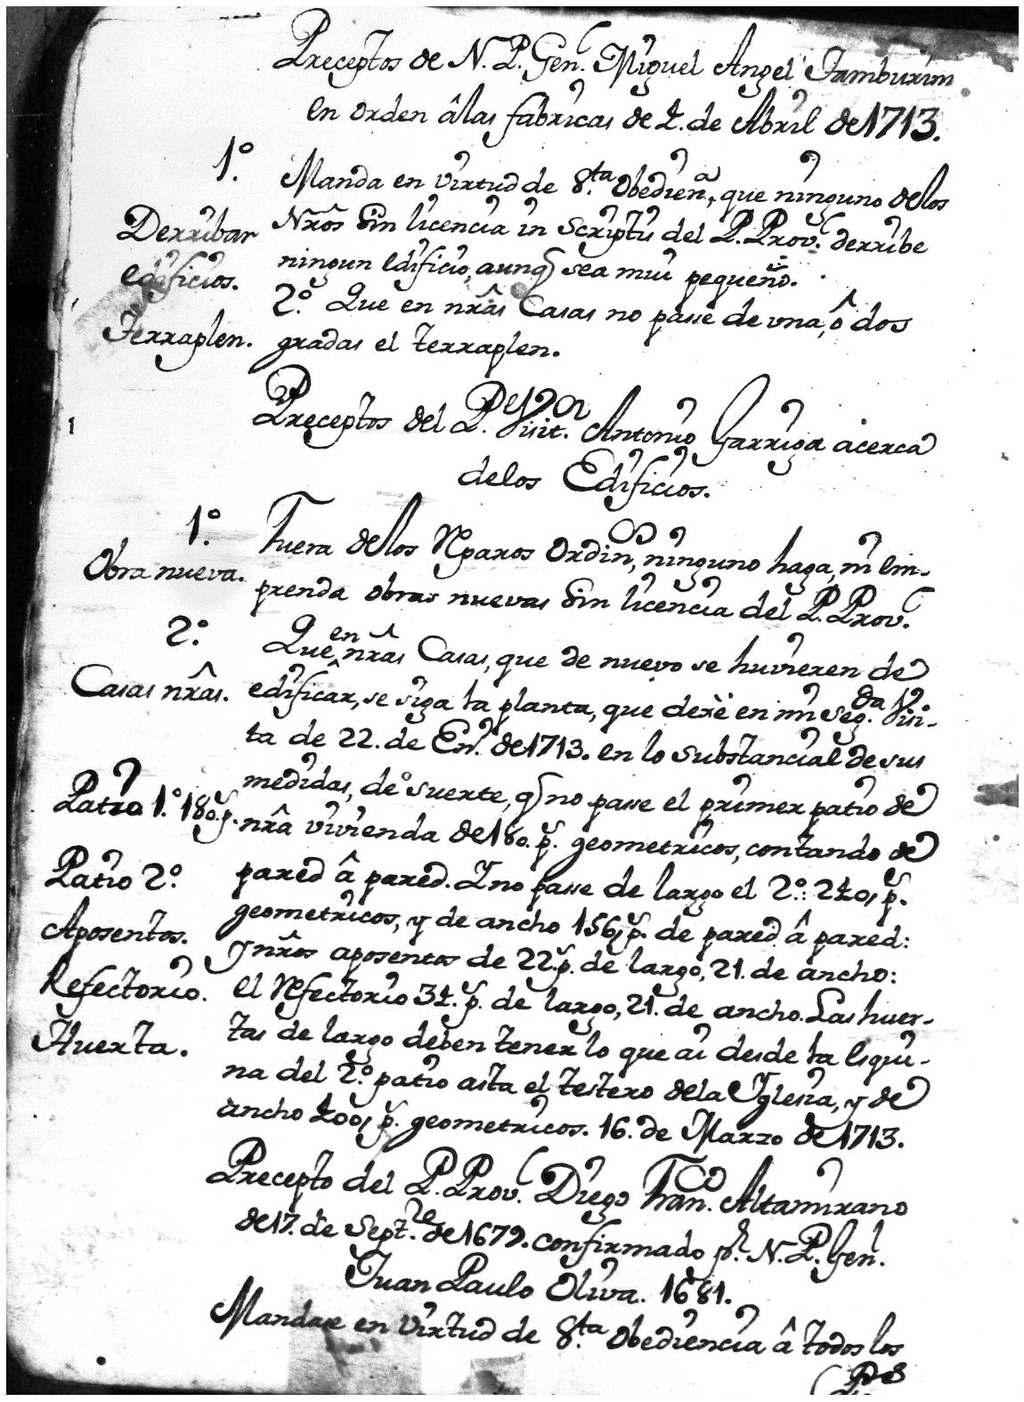 Preceptos de N. P. Gen.l Miguel Angel Tamburini
en orden â las fabricas de 2. de Abril de 1713.
1.o Manda en virtud de S.ta Obedien.a, que ninguno de los
Derribar Nr̃os sin licencia in scriptis del P. Prov.l derribe
edificios. ningun edificio, aunq̃ sea mui pequeño.
2.o Que en nr̃as Casas no passe de una, ô dos
Terraplen. gradas el terraplen.
Preceptos del P. Visit.or Antonio Garriga acerca
de los Edificios.
1.o Fuera de los Rparos ordin.os, ninguno haga, ni em-
Obra nueva. prenda obras nuevas sin licencia del P. Prov.l
2.o Que en nr̃as Casas, que de nuevo se huvieren de
Casas nr̃as. edificar, se siga la planta, que dexè en mi seg.da Visi-
ta de 22. de En.o de 1713. en lo substancial de sus
medidas, de suerte, q̃ no passe el primer patio de
Patio 1.o 180 p.s nr̃a vivienda de 180. p.s geometricos, contando de
Patio 2.o pared â pared. Y no passe de largo el 2.o: 240, p.s
geometricos, y de ancho 156, p.s de pared â pared:
Aposentos. y nr̃os aposentos de 22 p.s de largo, 21. de ancho:
Refectorio. el Rfectorio 34. p.s de largo, 21. de ancho. Las huer-
Huerta. tas de largo deben tener lo que ai desde la esqui-
na del 2.o patio asta el testero de la Yglesia, y de
ancho 400, p.s geometricos. 16. de Marzo de 1713.
Precepto del P. Prov.l Diego Fran.co Altamirano
de 17. de Sept.re de 1679. confirmado p.r N. P. Gen.l
Juan Paulo Oliva. 1681.
Mandase en virtud de S.ta Obediencia â todos los